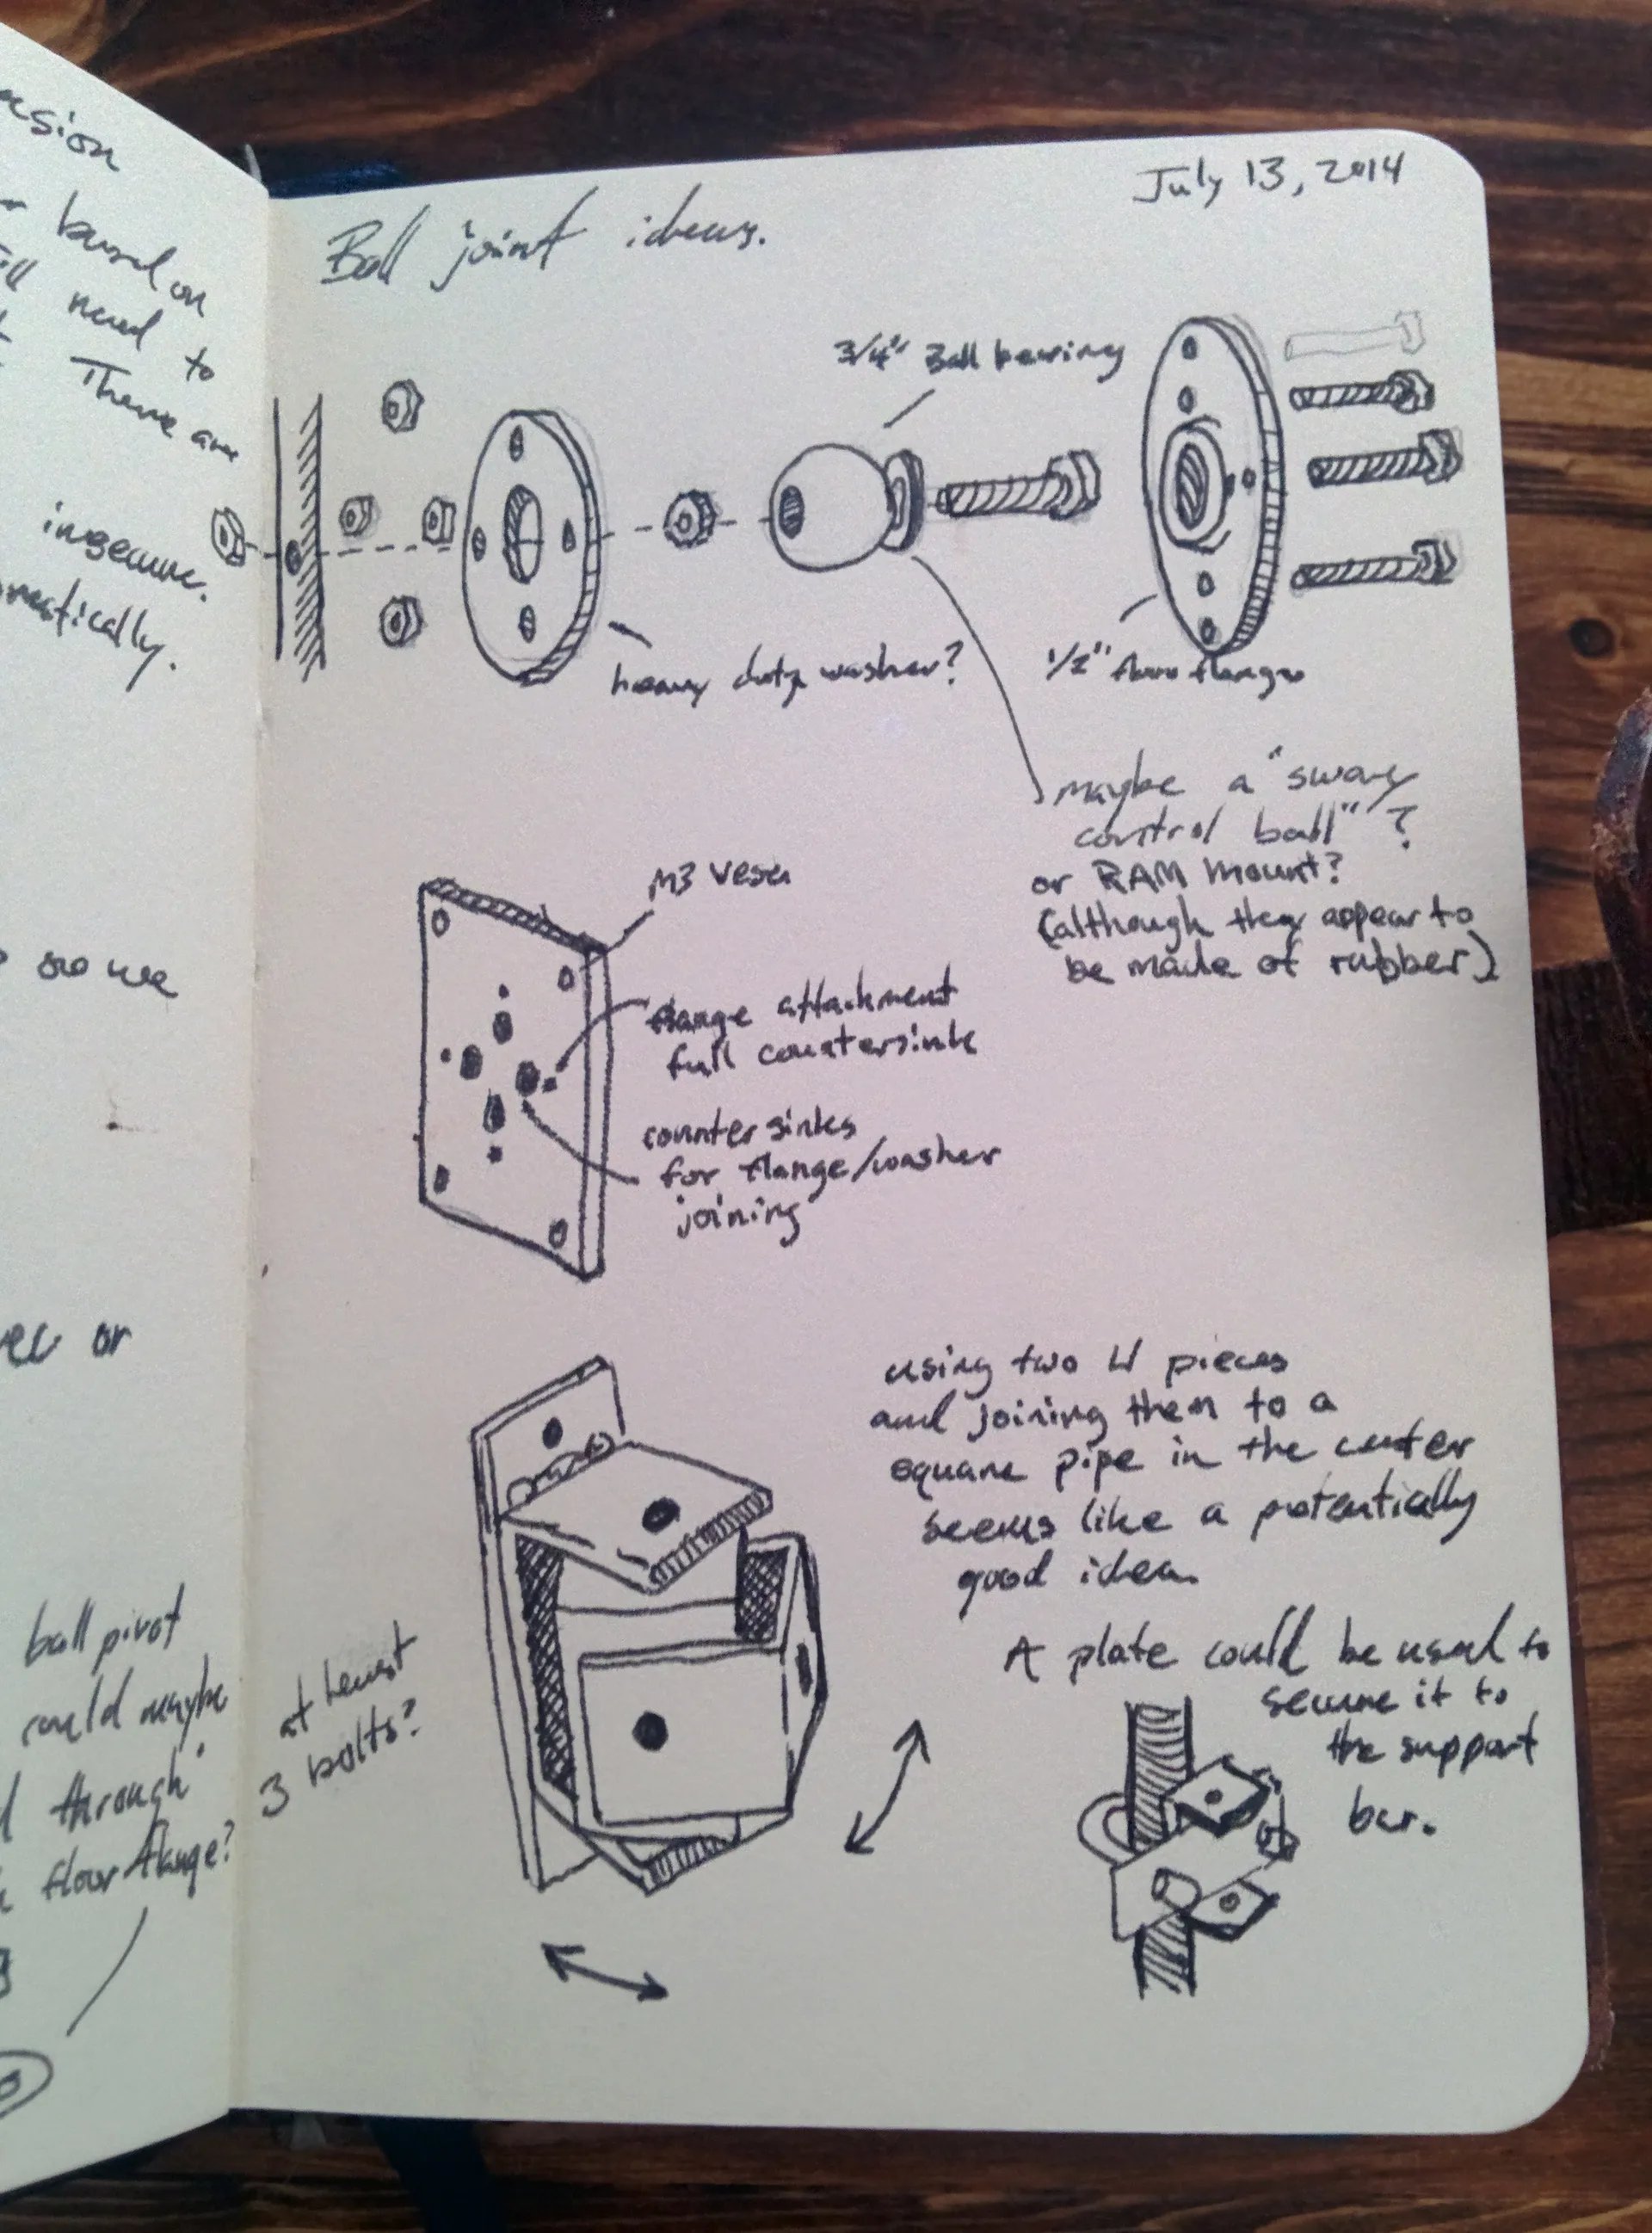 ension
based on
need to
There are
insecure.
ball pivot
could maybe
through
floor flange?
July 13, 2014
Ball joint ideas.
3/4" Ball bearing
heavy duty washer?
1/2" floor flange
maybe a "sway
control ball"?
or RAM mount?
(although they appear to
be made of rubber)
M3 Vesa
flange attachment
full countersink
counter sinks
for flange/washer
joining
using two U pieces
and joining them to a
square pipe in the center
seems like a potentially
good idea.
at least
3 bolts?
A plate could be used to
secure it to
the support
bar.